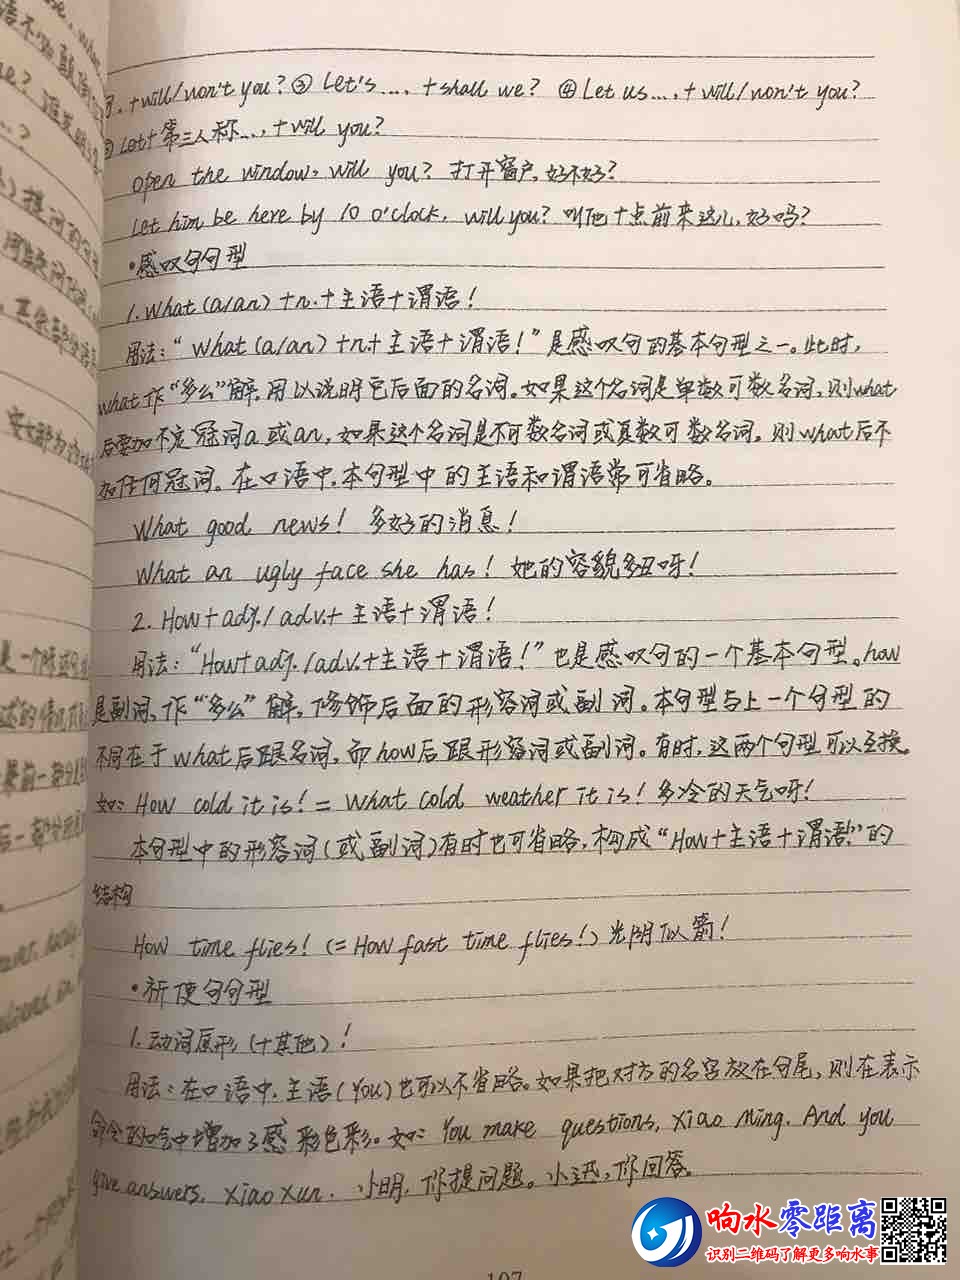 +will/won't you? ③ Let's ..., +shall we? ④ Let us ..., + will/won't you?
Let+第三人称..., + will you?
open the window, will you? 打开窗户,好不好?
Let him be here by 10 o'clock, will you? 叫他十点前来这儿,好吗?
·感叹句句型
1. What (a/an) +n.+主语+谓语!
用法:“What (a/an) +n+主语+谓语!”是感叹句的基本句型之一。此时,
what作“多么”解,用以说明它后面的名词。如果这个名词是单数可数名词,则what
后要加不定冠词a或an,如果这个名词是不可数名词或复数可数名词,则what后不
加任何冠词。在口语中,本句型中的主语和谓语常可省略。
What good news! 多好的消息!
What an ugly face she has! 她的容貌多丑呀!
2. How+adj./adv.+主语+谓语!
用法:“How+adj./adv.+主语+谓语!”也是感叹句的一个基本句型。how
是副词,作“多么”解,修饰后面的形容词或副词。本句型与上一个句型的
不同在于what后跟名词,而how后跟形容词或副词。有时,这两个句型可以互换。
如: How cold it is! = What cold weather it is! 多冷的天气呀!
本句型中的形容词(或副词)有时也可省略,构成“How+主语+谓语!”的
结构
How time flies! (= How fast time flies!) 光阴似箭!
·祈使句句型
1.动词原形(+其他)!
用法:在口语中,主语(You)也可以不省略。如果把对方的名字放在句尾,则在表示
命令的口气中增加了感彩色彩。如: You make questions, Xiao Ming. And you
give answers, Xiao Xun. 小明,你提问题。小迅,你回答。
107
响水零距离
识别二维码了解更多响水事